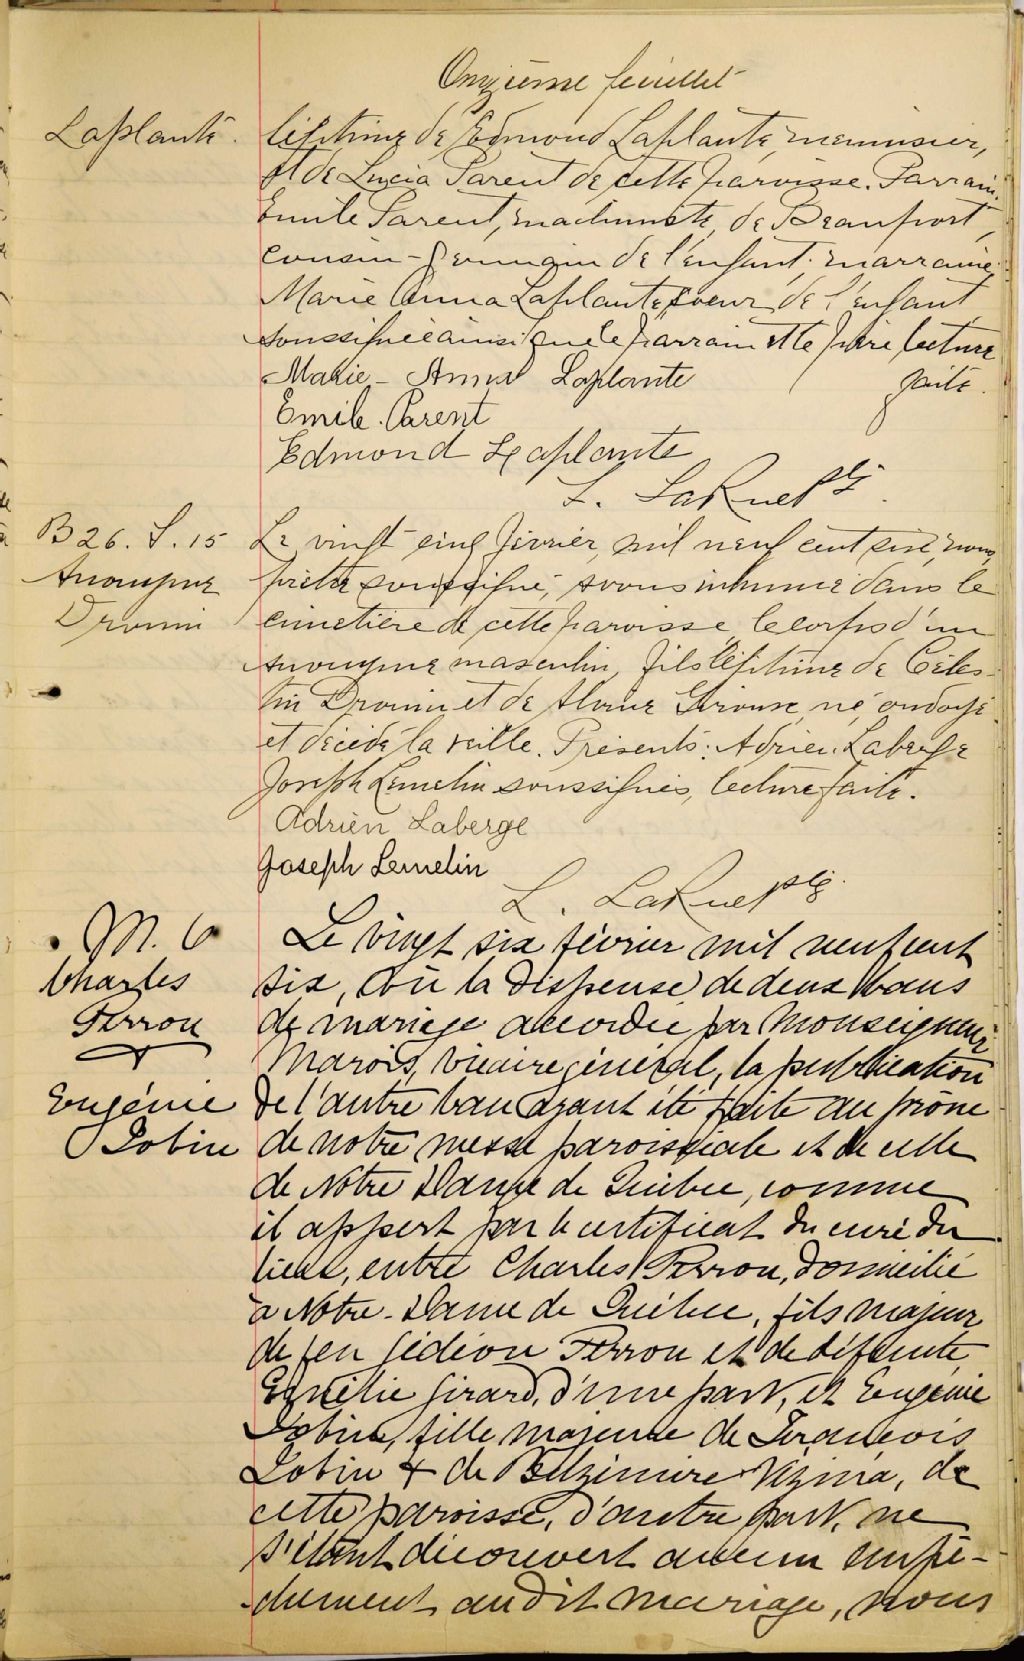 Onzième feuillet
Laplante.
légitime de Edmond Laplante, menuisier,
et de Lucia Parent de cette paroisse. Parrain,
Emile Parent, machiniste, de Beauport,
cousin-germain de l'enfant; marraine,
Marie Anna Laplante, soeur de l'enfant,
soussignée ainsi que le parrain et le père, lecture
faite.
Marie-Anna Laplante
Emile Parent
Edmond Laplante
L. LaRue ptr
B 26. S. 15
Anonyme
Drouin
Le vingt cinq février, mil neuf cent six, nous,
prêtre soussigné, avons inhumé dans le
cimetière de cette paroisse, le corps d'un
anonyme masculin, fils légitime de Céles-
tin Drouin et de Giroux, né, ondoyé
et décédé la veille. Présents: Adrien Laberge
Joseph Lemelin soussignés, lecture faite.
Adrien Laberge
Joseph Lemelin
L. LaRue ptr
M. 6
Charles
Perron
&
Eugénie
Jobin
Le vingt six février mil neuf cent
six, vu la dispense de deux bans
de mariage accordée par Monseigneur
Marois, vicaire général, la publication
de l'autre ban ayant été faite au prône
de notre messe paroissiale et de celle
de Notre Dame de Québec, comme
il appert par le certificat du curé du
lieu, entre Charles Perron, domicilié
à Notre-Dame de Québec, fils majeur
de feu Gédéon Perron et de défunte
Emélie Girard, d'une part, et Eugénie
Jobin, fille majeure de François
Jobin & de Belzimire Vézina, de
cette paroisse, d'autre part, ne
s'étant découvert aucun empê-
chement au dit mariage, nous